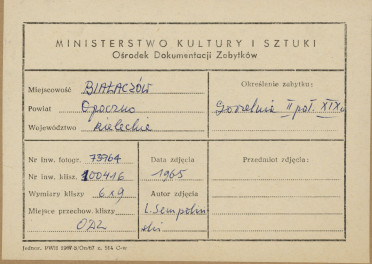 MINISTERSTWO KULTURY I SZTUKI
Ośrodek Dokumentacji Zabytków
Miejscowość BIAŁACZÓW
Powiat Opoczno
Województwo kieleckie
Określenie zabytku:
Gorzelnia II poł. XIX w
Nr inw. fotogr. 73764
Nr inw. klisz. 100416
Wymiary kliszy 6x9
Miejsce przechow. kliszy
ODZ
Data zdjęcia
1965
Autor zdjęcia
L. Sempoliń-
ski
Przedmiot zdjęcia: